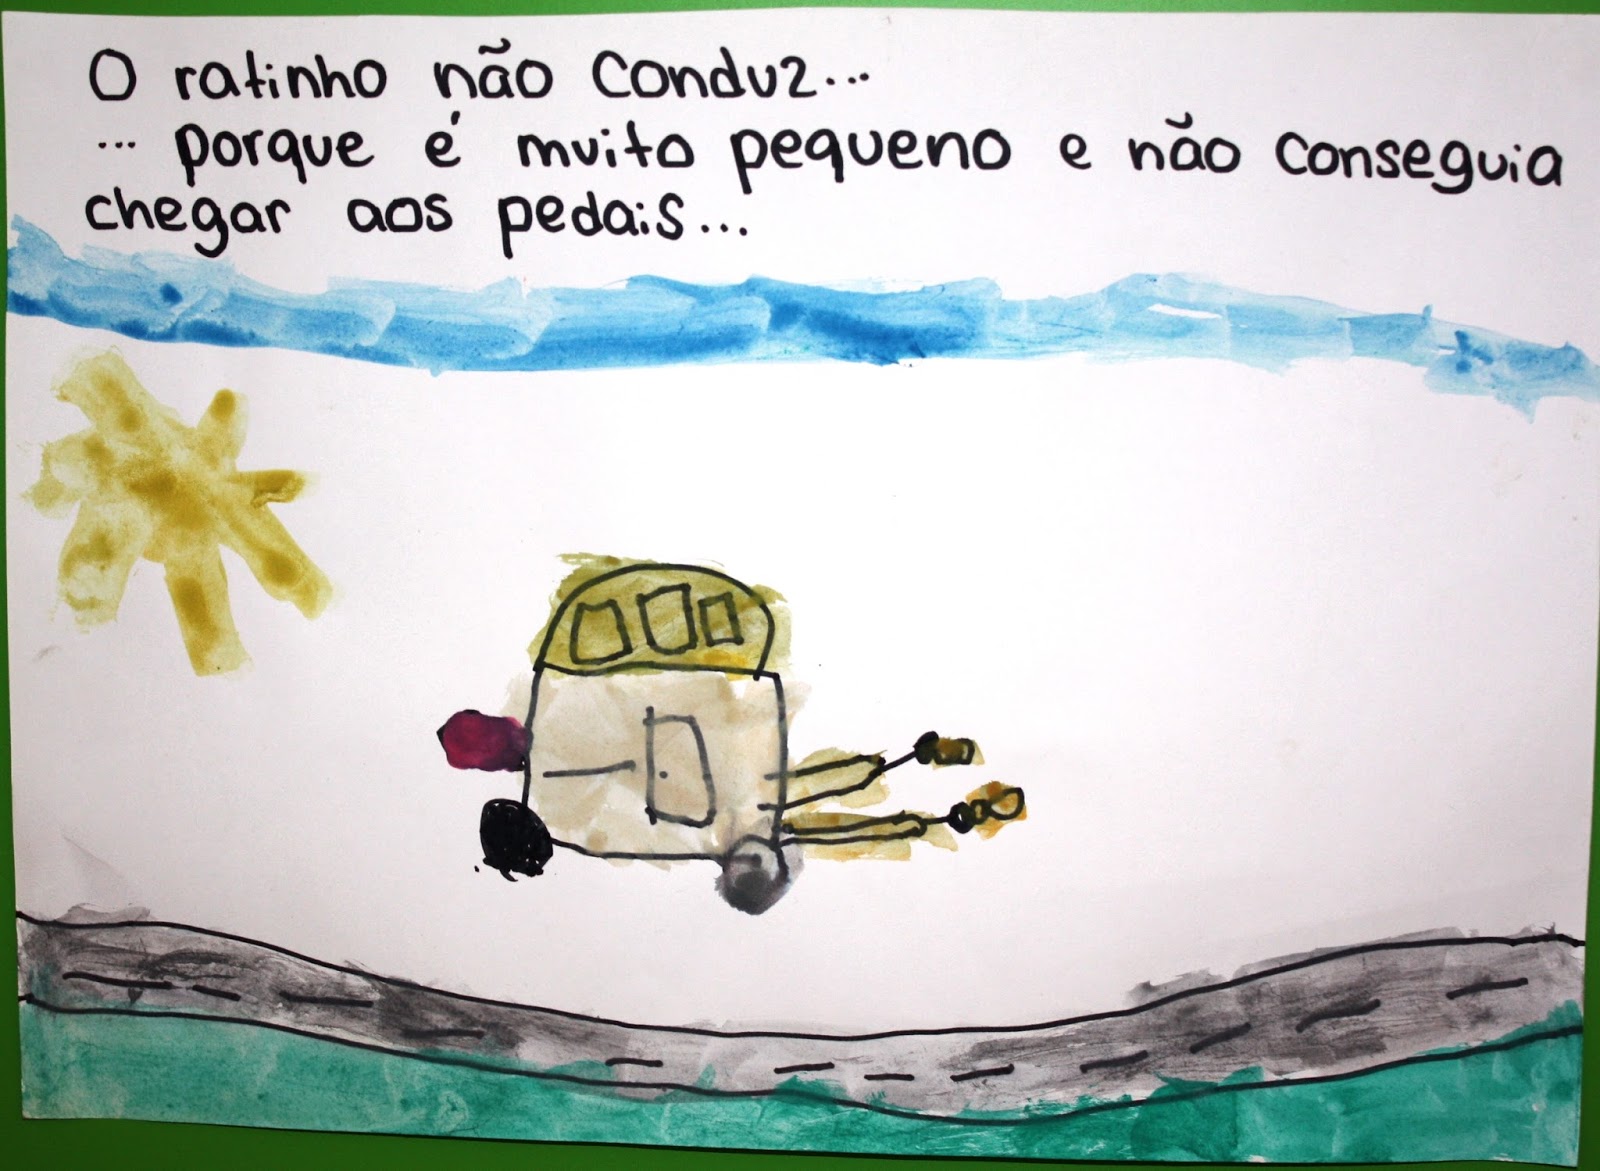 O ratinho não conduz...
... porque é muito pequeno e não conseguia
chegar aos pedais...